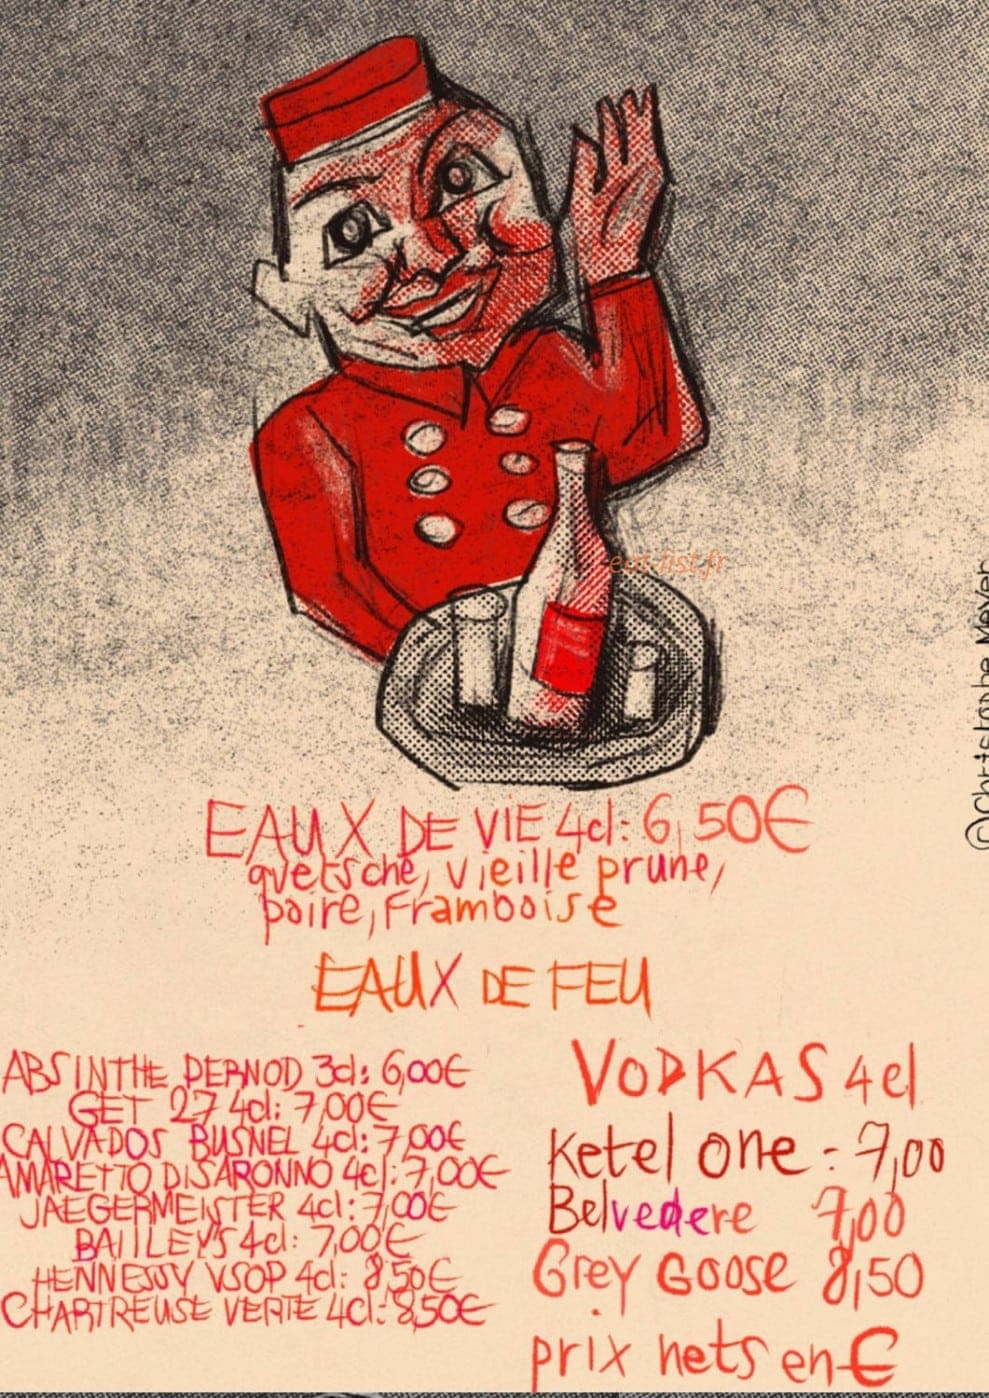 eat-list.fr
©Christophe Meyer
EAUX DE VIE 4cl: 6,50€
quetsche, vieille prune,
poire, Framboise
EAUX DE FEU
ABSINTHE PERNOD 3cl: 6,00€
GET 27 4cl: 7,00€
CALVADOS BUSNEL 4cl: 7,00€
AMARETTO DISARONNO 4cl: 7,00€
JAEGERMEISTER 4cl: 7,00€
BAILLEYS 4cl: 7,00€
HENNESSY VSOP 4cl: 8,50€
CHARTREUSE VERTE 4cl: 8,50€
VODKAS 4cl
Ketel one : 7,00
Belvedere 7,00
Grey Goose 8,50
prix nets en €